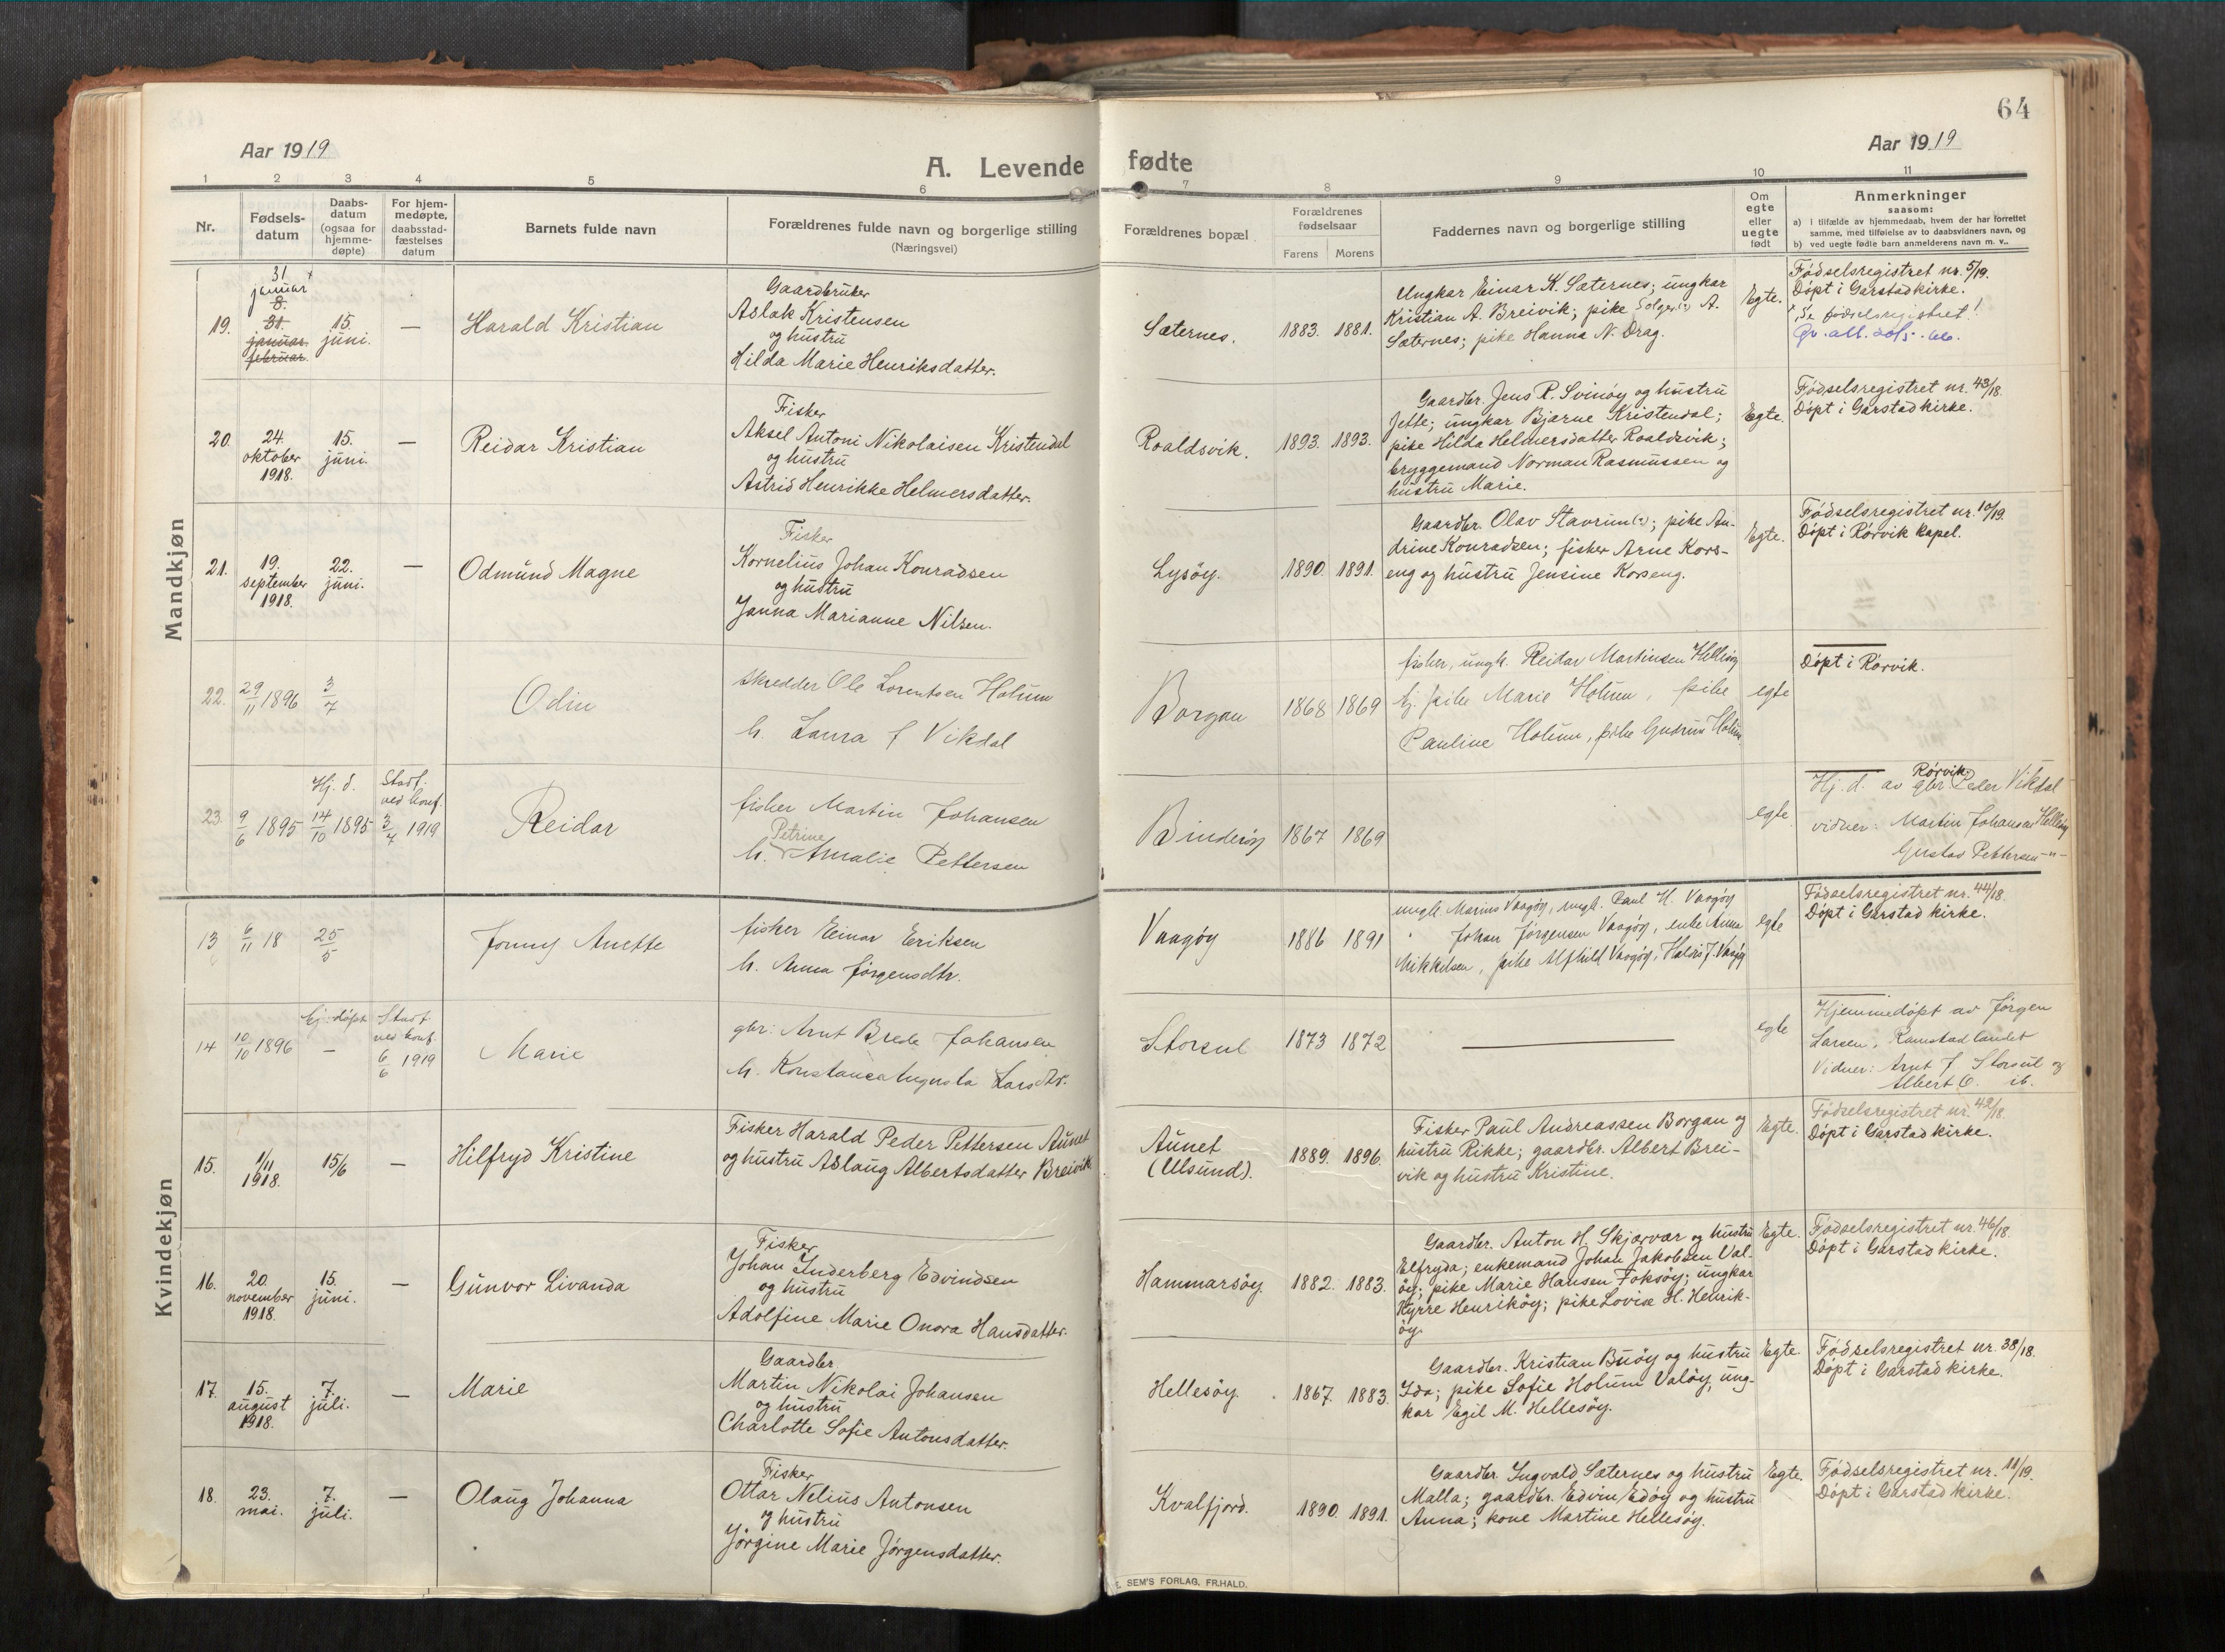 64
Aar 1919
A. Levende fødte
Aar 1919
1 2 3 4 5 6 7 8 9 10 11
Nr.
Fødsels-
datum
Daabs-
datum
(ogsaa for
hjemme-
døpte)
For hjem-
medøpte,
daabsstad-
fæstelses
datum
Barnets fulde navn
Forældrenes fulde navn og borgerlige stilling
(Næringsvei)
Forældrenes bopæl
Forældrenes
fødselsaar
Farens Morens
Faddernes navn og borgerlige stilling
Om
egte
eller
uegte
født
Anmerkninger
saasom:
a) i tilfælde av hjemmedaab, hvem der har forrettet
samme, med tilføielse av to daabsvidners navn, og
b) ved uegte fødte barn anmelderens navn m. v..
Mandkjøn
19.
31 x
januar
8.
31.
januar.
februar.
15.
juni.
—
Harald Kristian
Gaardbruker
Aslak Kristensen
og hustru
Hilda Marie Henriksdatter.
Sæternes.
1883. 1881.
Ungkar Einar K. Sæternes; ungkar
Kristian A. Breivik; pike Solger(?) A.
Sæternes; pike Hanna N. Drag.
Egte.
Fødselsregistret nr. 5/19.
Døpt i Garstad kirke.
x Se fødselsregistret!
20.
24.
oktober
1918.
15.
juni.
—
Reidar Kristian
Fisker
Aksel Antoni Nikolaisen Kristendal
og hustru
Astrid Henrikke Helmersdatter.
Roaldsvik.
1893. 1893.
Gaardbr. Jens R. Svinøy og hustru
Jette; ungkar Bjarne Kristendal;
pike Hilda Helmersdatter Roaldsvik;
bryggemand Norman Rasmussen og
hustru Marie.
Egte.
Fødselsregistret nr. 43/18.
Døpt i Garstad kirke.
21.
19.
september
1918.
22.
juni.
—
Odmund Magne
Fisker
Kornelius Johan Konradsen
og hustru
Janna Marianne Nilsen.
Lysøy.
1890. 1891.
Gaardbr. Olav Stavrum(?); pike An-
drine Konradsen; fisker Arne Kors-
eng og hustru Jensine Korseng.
Egte.
Fødselsregistret nr. 10/19.
Døpt i Rørvik kapel.
22.
29/11 1896
3/7
Odin
skredder Ole Lorentsen Holum
h. Laura f Vikdal
Borgan
1868 1869
fisker, ungk. Reidar Martinsen Hellesøy
Ej. pike Marie Holum, pike
Pauline Holum, pike Gudrun Holum
egte
Døpt i Rørvik.
23.
9/6 1895
Hj. d.
14/10 1895
Stadf.
ved konf.
3/7 1919
Reidar
fisker Martin Johansen
Petrine
h. Amalie Pettersen
Binderøy
1867 1869
egte
Rørvik
Hj. d. av gbr Peder Vikdal
vidner: Martin Johansen Hellesøy
Gustav Pettersen -"-
Kvindekjøn
13
6/11 18
25/5
Jonny Anette
fisker Einar Eriksen
h. Anna Jørgensdtr.
Vaagøy
1886 1891
ungk. Marius Vaagøy, ungk. Paul H. Vaagøy
" Johan Jørgensen Vaagøy, enke Anna
Mikkelsen, pike Alfhild Vaagøy, Haldis J. Vaagøy
egte
Fødselsregistret nr. 44/18.
Døpt i Garstad kirke.
14
10/10 1896
Ej: døpt
—
Stadf.
ved konf.
6/6 1919
Marie
gbr: Arnt Brede Johansen
h. Konstance Augusta Larsdtr.
Storsul
1873 1872
—
egte
Hjemmedøpt av Jørgen
Larsen, Ramstadlandet
Vidner: Arnt J. Storsul og
Albert O. ib.
15.
1/11
1918.
15/6
—
Hilfryd Kristine
Fisker Harald Peder Pettersen Aunet
og hustru Aslaug Albertsdatter Breivik.
Aunet
(Ulsund).
1889. 1896.
Fisker Paul Andreassen Borgan og
hustru Rikke; gaardbr. Albert Brei-
vik og hustru Kristine.
Egte.
Fødselsregistret nr. 42/18.
Døpt i Garstad kirke.
16.
20.
november
1918.
15.
juni.
—
Gunvor Livanda
Fisker
Johan Inderberg Edvindsen
og hustru
Adolfine Marie Onora Hansdatter.
Hammarsøy.
1882. 1883.
Gaardbr. Anton H. Skjærvær og hustru
Elfryda; enkemand Johan Jakobsen Val-
øy; pike Marie Hansen Foksøy; ungkar
Kyrre Henrikøy; pike Lovise H. Henrik-
øy.
Egte.
Fødselsregistret nr. 46/18.
Døpt i Garstad kirke.
17.
15.
august
1918.
7.
juli.
—
Marie
Gaardbr.
Martin Nikolai Johansen
og hustru
Charlotte Sofie Antonsdatter.
Hellesøy.
1867. 1883.
Gaardbr. Kristian Buøy og hustru
Ida; pike Sofie Holum Valøy, ung-
kar Egil M. Hellesøy.
Egte.
Fødselsregistret nr. 38/18.
Døpt i Garstad kirke.
18.
23.
mai.
7.
juli.
—
Olaug Johanna
Fisker
Ottar Nelius Antonsen
og hustru
Jørgine Marie Jørgensdatter.
Kvalfjord.
1890. 1891.
Gaardbr. Ingvald Sæternes og hustru
Malla; gaardbr. Edvin Edøy og hustru
Anna; kone Martine Hellesøy.
Egte.
Fødselsregistret nr. 11/19.
Døpt i Garstad kirke.
SEM'S FORLAG, FR.HALD.